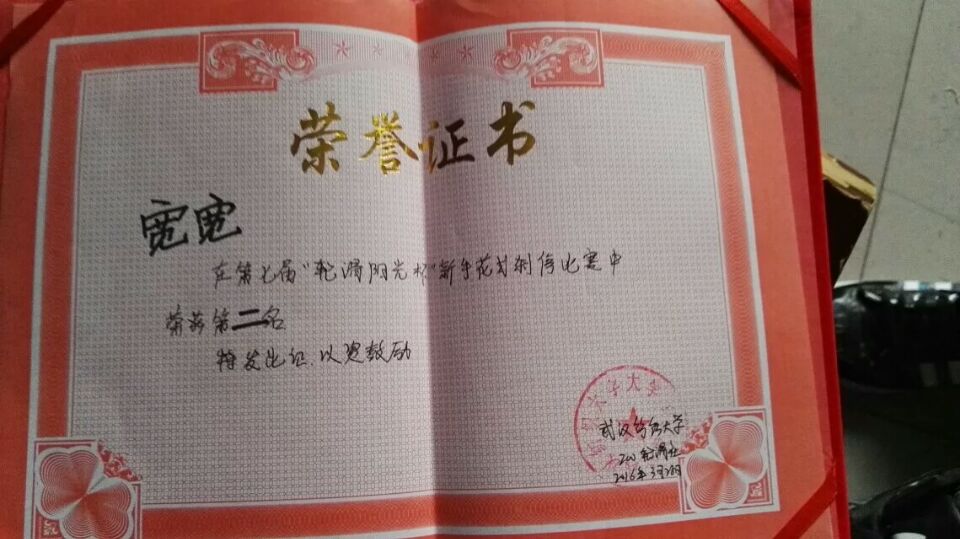 荣誉证书
宽宽
在第七届“轮滑阳光杯”新生花式刹停比赛中
荣获第二名
特发此证,以资鼓励
武汉纺织大学
轮滑社
2016年3月20日